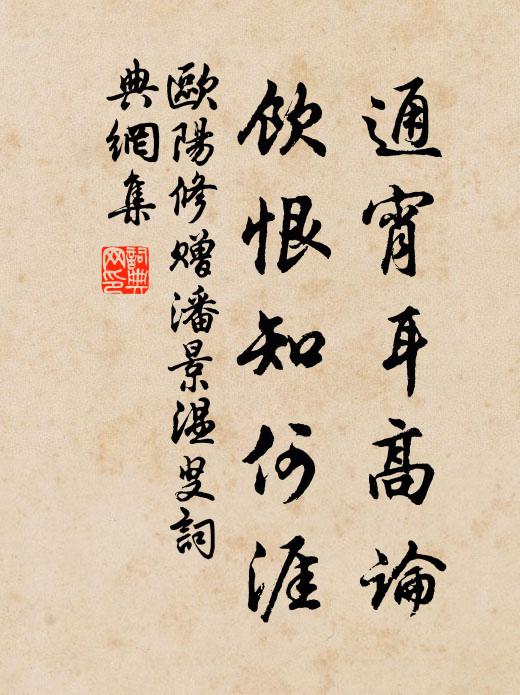 通宵耳高論
飲恨知何涯
歐陽修贈潘景溫叟詞
典網集
詞典網印